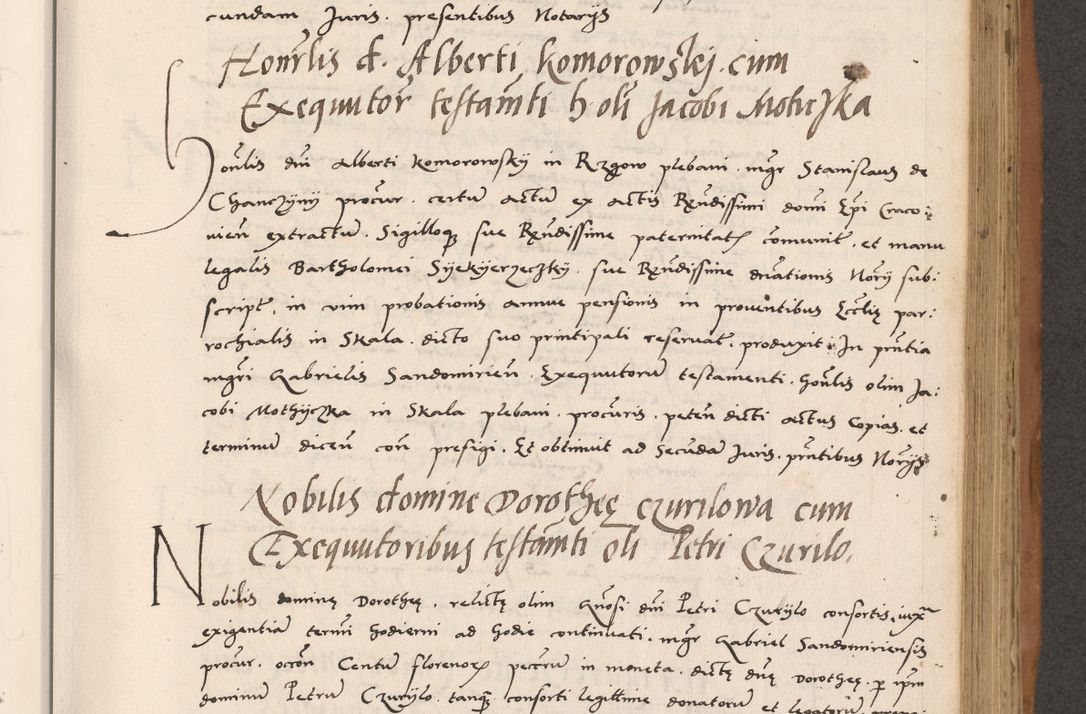 cundam Juris. presentibus Notarijs
Honrlis d. Alberti Komorowskej cum
Exequutor testamti h oli Jacobi Mothiczka
Honlis dni Alberti Komorowsky in Rzgow plebani. mgr Stanislaus de
Chanczyny procur. certum actum ex actis Rendissimi domi Epi Craco:
vien extractum. Sigilloq sue Rendissime paternitatis comunit. et manu
legalis Bartholomei Syekyerzeczky. sue Rendissime dnationis Nory sub:
script. in vim probationis annue pensionis in proventibus Ecclie par:
rochialis in Skala. dicto suo principali reservat. produxit: In pntia
mgri Gabrielis Sandomirien. Exequutorum testamenti. honlis olim Ja:
cobi Mothyczka in Skala plebani. procuris. peten dicti actus copias. et
terminum dicen con prefigi. Et obtinuit ad Secundam Juris. pntibus Norijs
Nobilis domine Dorothee Czurilowa cum
Exequutoribus testamti oli Petri Czurilo.
Nobilis domine Dorothee. relicte olim Gnosi dni Petri Czurylo consortis. iuxta
exigentiam termi hodierni ad hodie continuati. mgr Gabriel Sandomiriensis
procur. occon Centum florenorum peccrum in moneta. dicte dne Dorothee. p ipm
dominum Petrum Czurylo. tanq consorti legittime donatorum et legatorum.